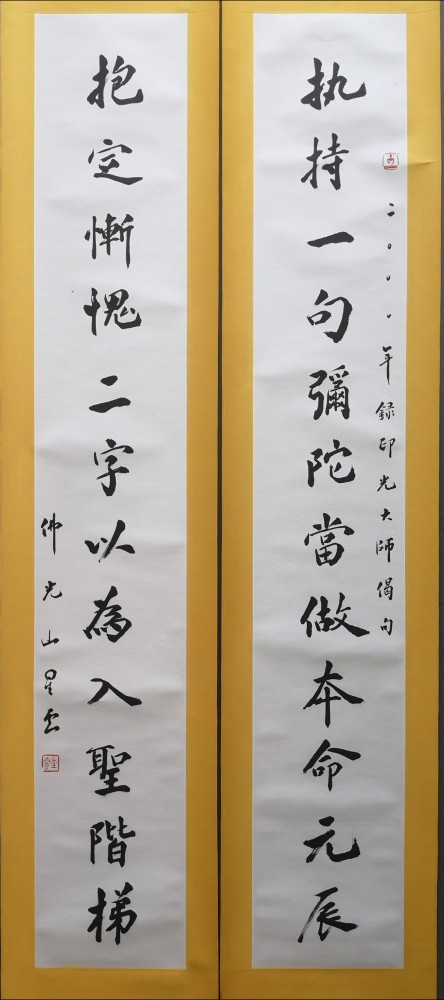 二〇〇〇年録印光大師偈句
执持一句彌陀當做本命元辰
抱定慚愧二字以為入聖階梯
佛光山星雲